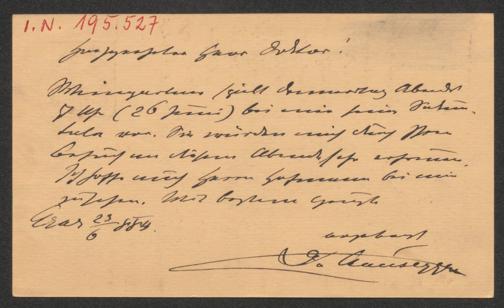 I.N. 195.527
Hochgeehrter Herr Doktor!
Weingartner spielt Donnerstag Abends
7 Uhr (26 Juni) bei mir sein Sakun-
tala vor. Sie würden mich durch Ihren
Besuch an diesem Abende sehr erfreuen.
Ich hoffe auch Herrn Hofmann bei mir
zu sehen. Mit bestem Gruß
Graz 23/6 884.
ergebenst
F. v. Hausegger